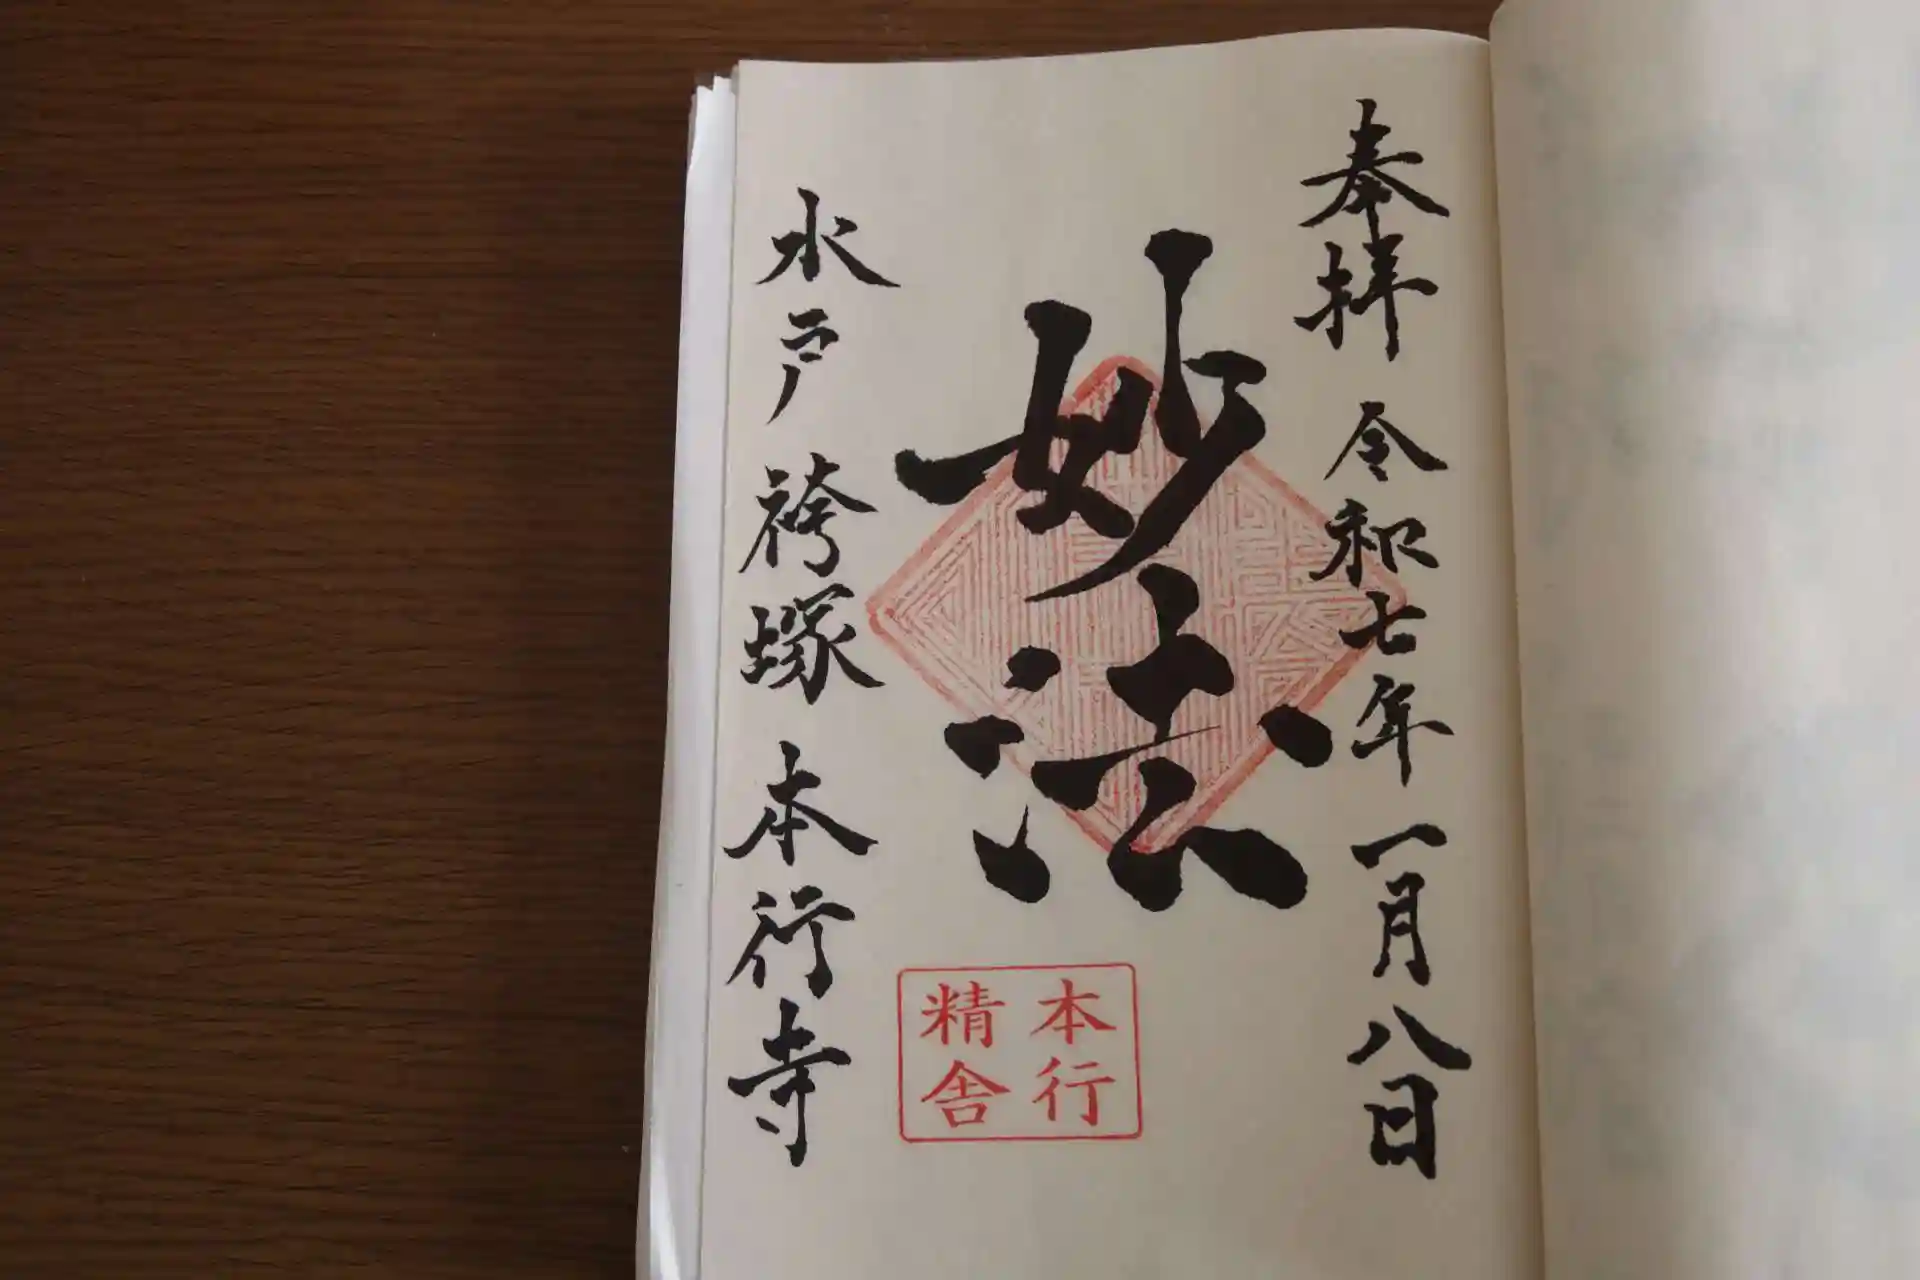 奉拝 令和七年一月八日
妙法
本行
精舎
水戸 袴塚 本行寺